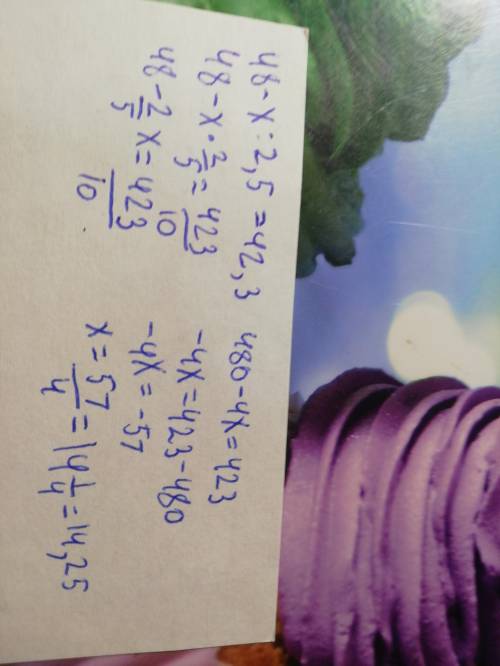 48-x:2,5=42,3
48-x·2/5=423/10
48-2/5x=423/10
480-4x=423
-4x=423-480
-4x=-57
x=57/4=14 1/4=14,25